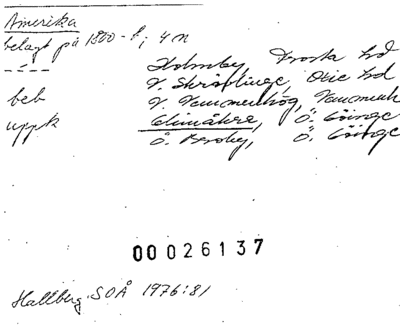 Amerika
belagt på 1800-t; 4 n
- " - Holmby, Frosta hd
V. Skrävlinge, Oxie hd
beb V. Vemmenhög, Vemmenh
uppk Glimåkra, Ö. Göinge
Ö. Broby, Ö. Göinge
00026137
Hallberg SOÅ 1976:81